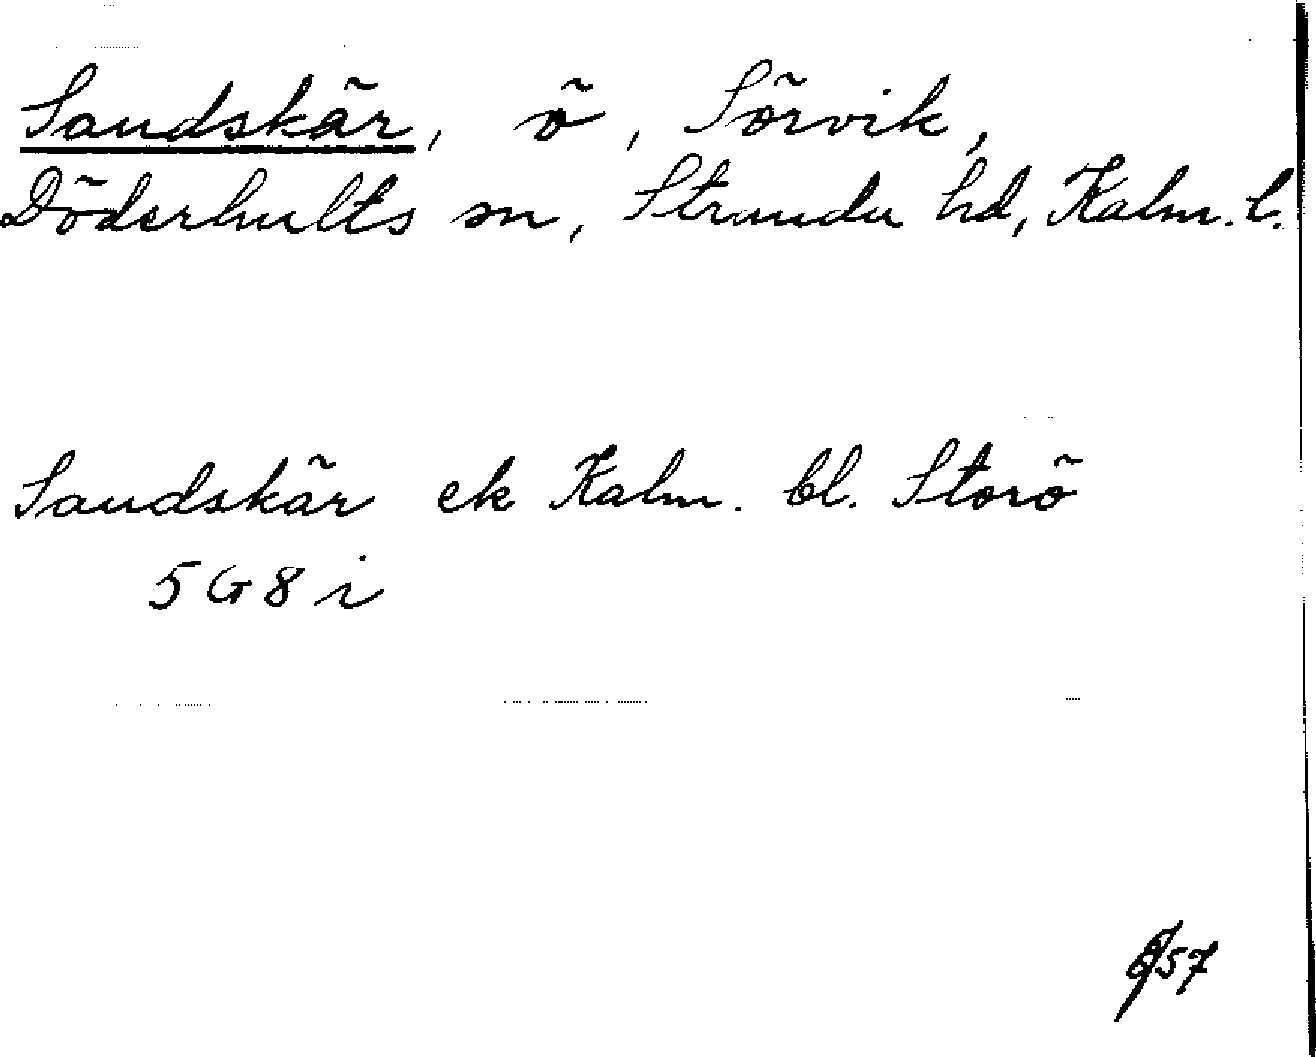 Sandskär, ö, Sörvik,
Döderhults sn, Stranda hd, Kalm. l.
Sandskär ek Kalm. bl. Storö
5G8i
57